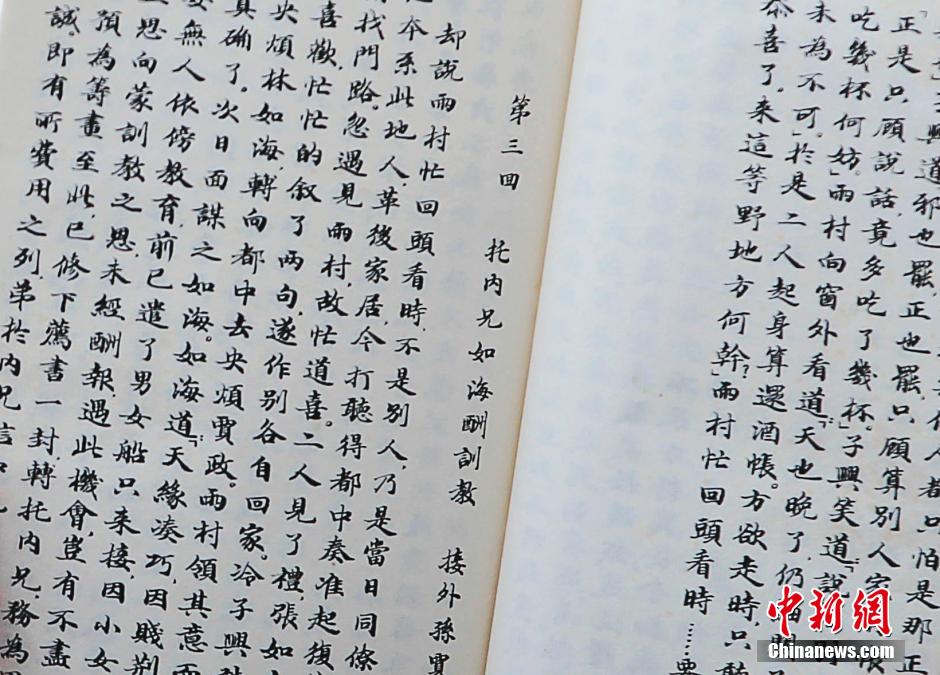 都只怕是那正
興道邪也罷,正也罷,只顧算別人家
「正是只顧說話,竟多吃了幾杯。」子興笑道:「說
吃幾杯何妨。」雨村向窗外看道:「天也晚了,仍
未為不可。」於是二人起身算還酒帳。方欲走時,只聽
恭喜了,來這等野地方何幹?」雨村忙回頭看時……要
第三回 托內兄如海酬訓教 接外孫賈
却說雨村忙回頭看時,不是別人,乃是當日同僚
本系此地人,革後家居,今打聽得都中奏准起復
找門路,忽遇見雨村,故忙道喜。二人見了禮,張如
喜歡,忙忙的叙了兩句,遂作別各自回家。冷子興
央煩林如海,轉向都中去央煩賈政。雨村領其意而
真确了。次日面謀之如海。如海道:「天緣湊巧,因賤荊
無人依傍教育,前已遣了男女船只來接,因小女
思向蒙訓教之恩,未經酬報,遇此機會,豈有不盡
預為籌畫至此,已修下薦書一封,轉托內兄務為
誠,即有所費用之列,弟於內兄信
中新網
Chinanews.com